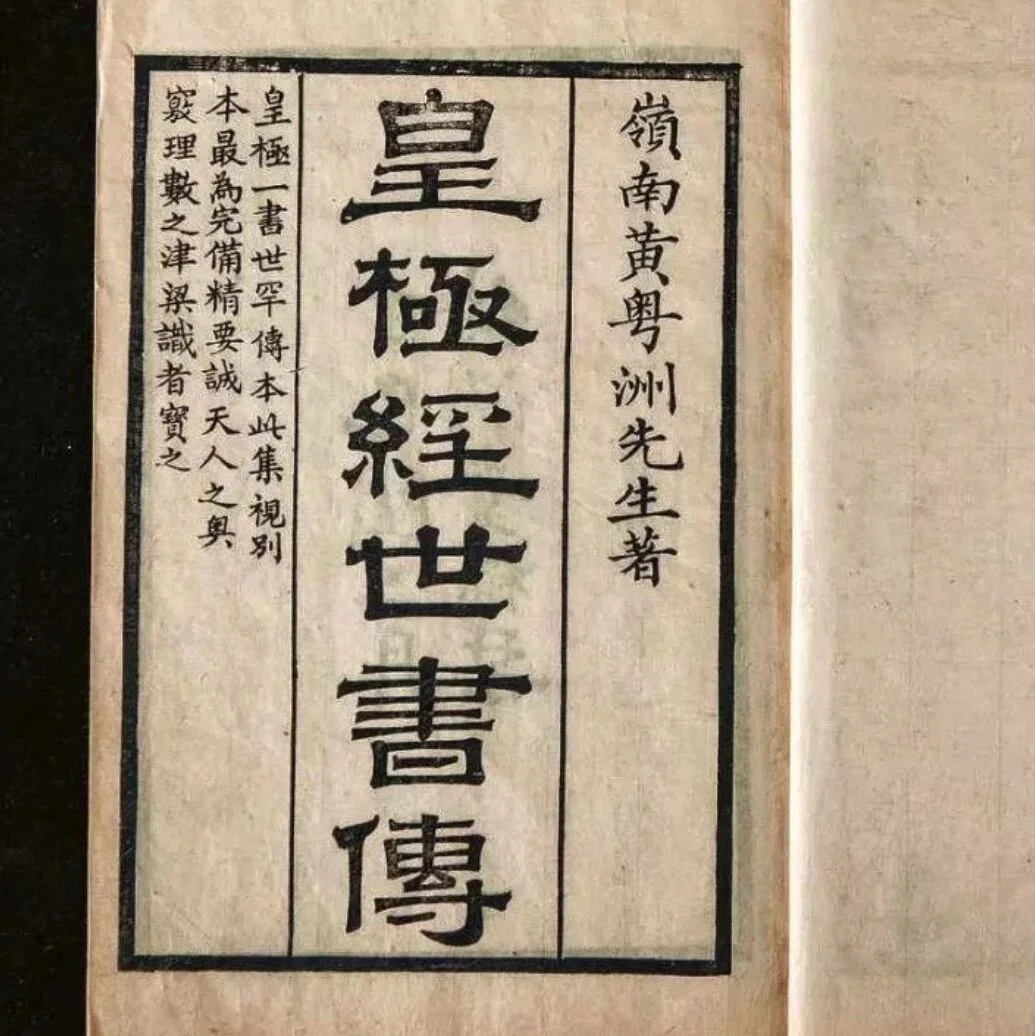 嶺南黃粵洲先生著
皇極經世書傳
皇極一書世罕傳本此集視別
本最為完備精要誠天人之奥
竅理數之津梁識者寶之